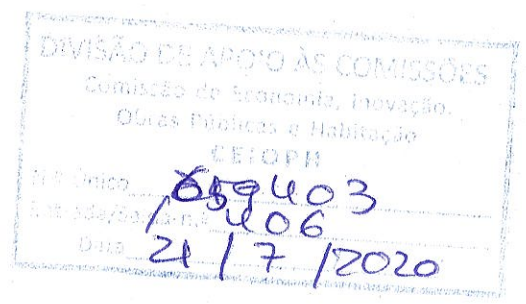 DIVISÃO DE APOIO ÀS COMISSÕES
Comissão de Economia, Inovação,
Obras Públicas e Habitação
CEIOPH
N.º Único 659403
Entrada/Saída n.º 406
Data 21/7/2020